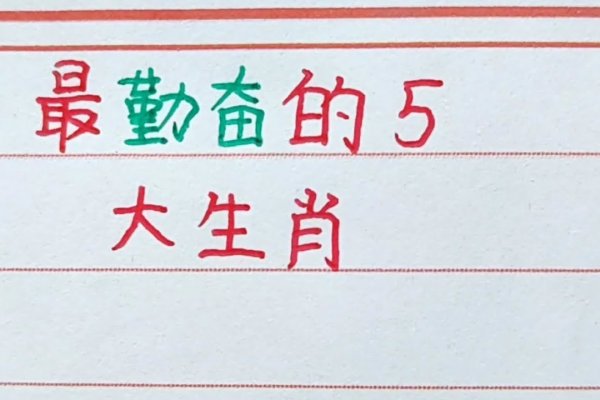 最勤奋的5
大生肖